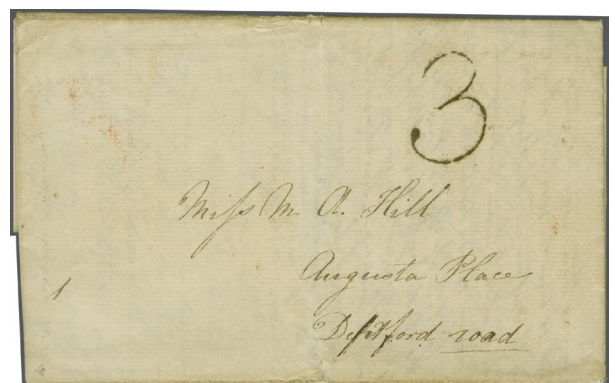 3
Miss M. A. Hill
Augusta Place
1
Deptford road